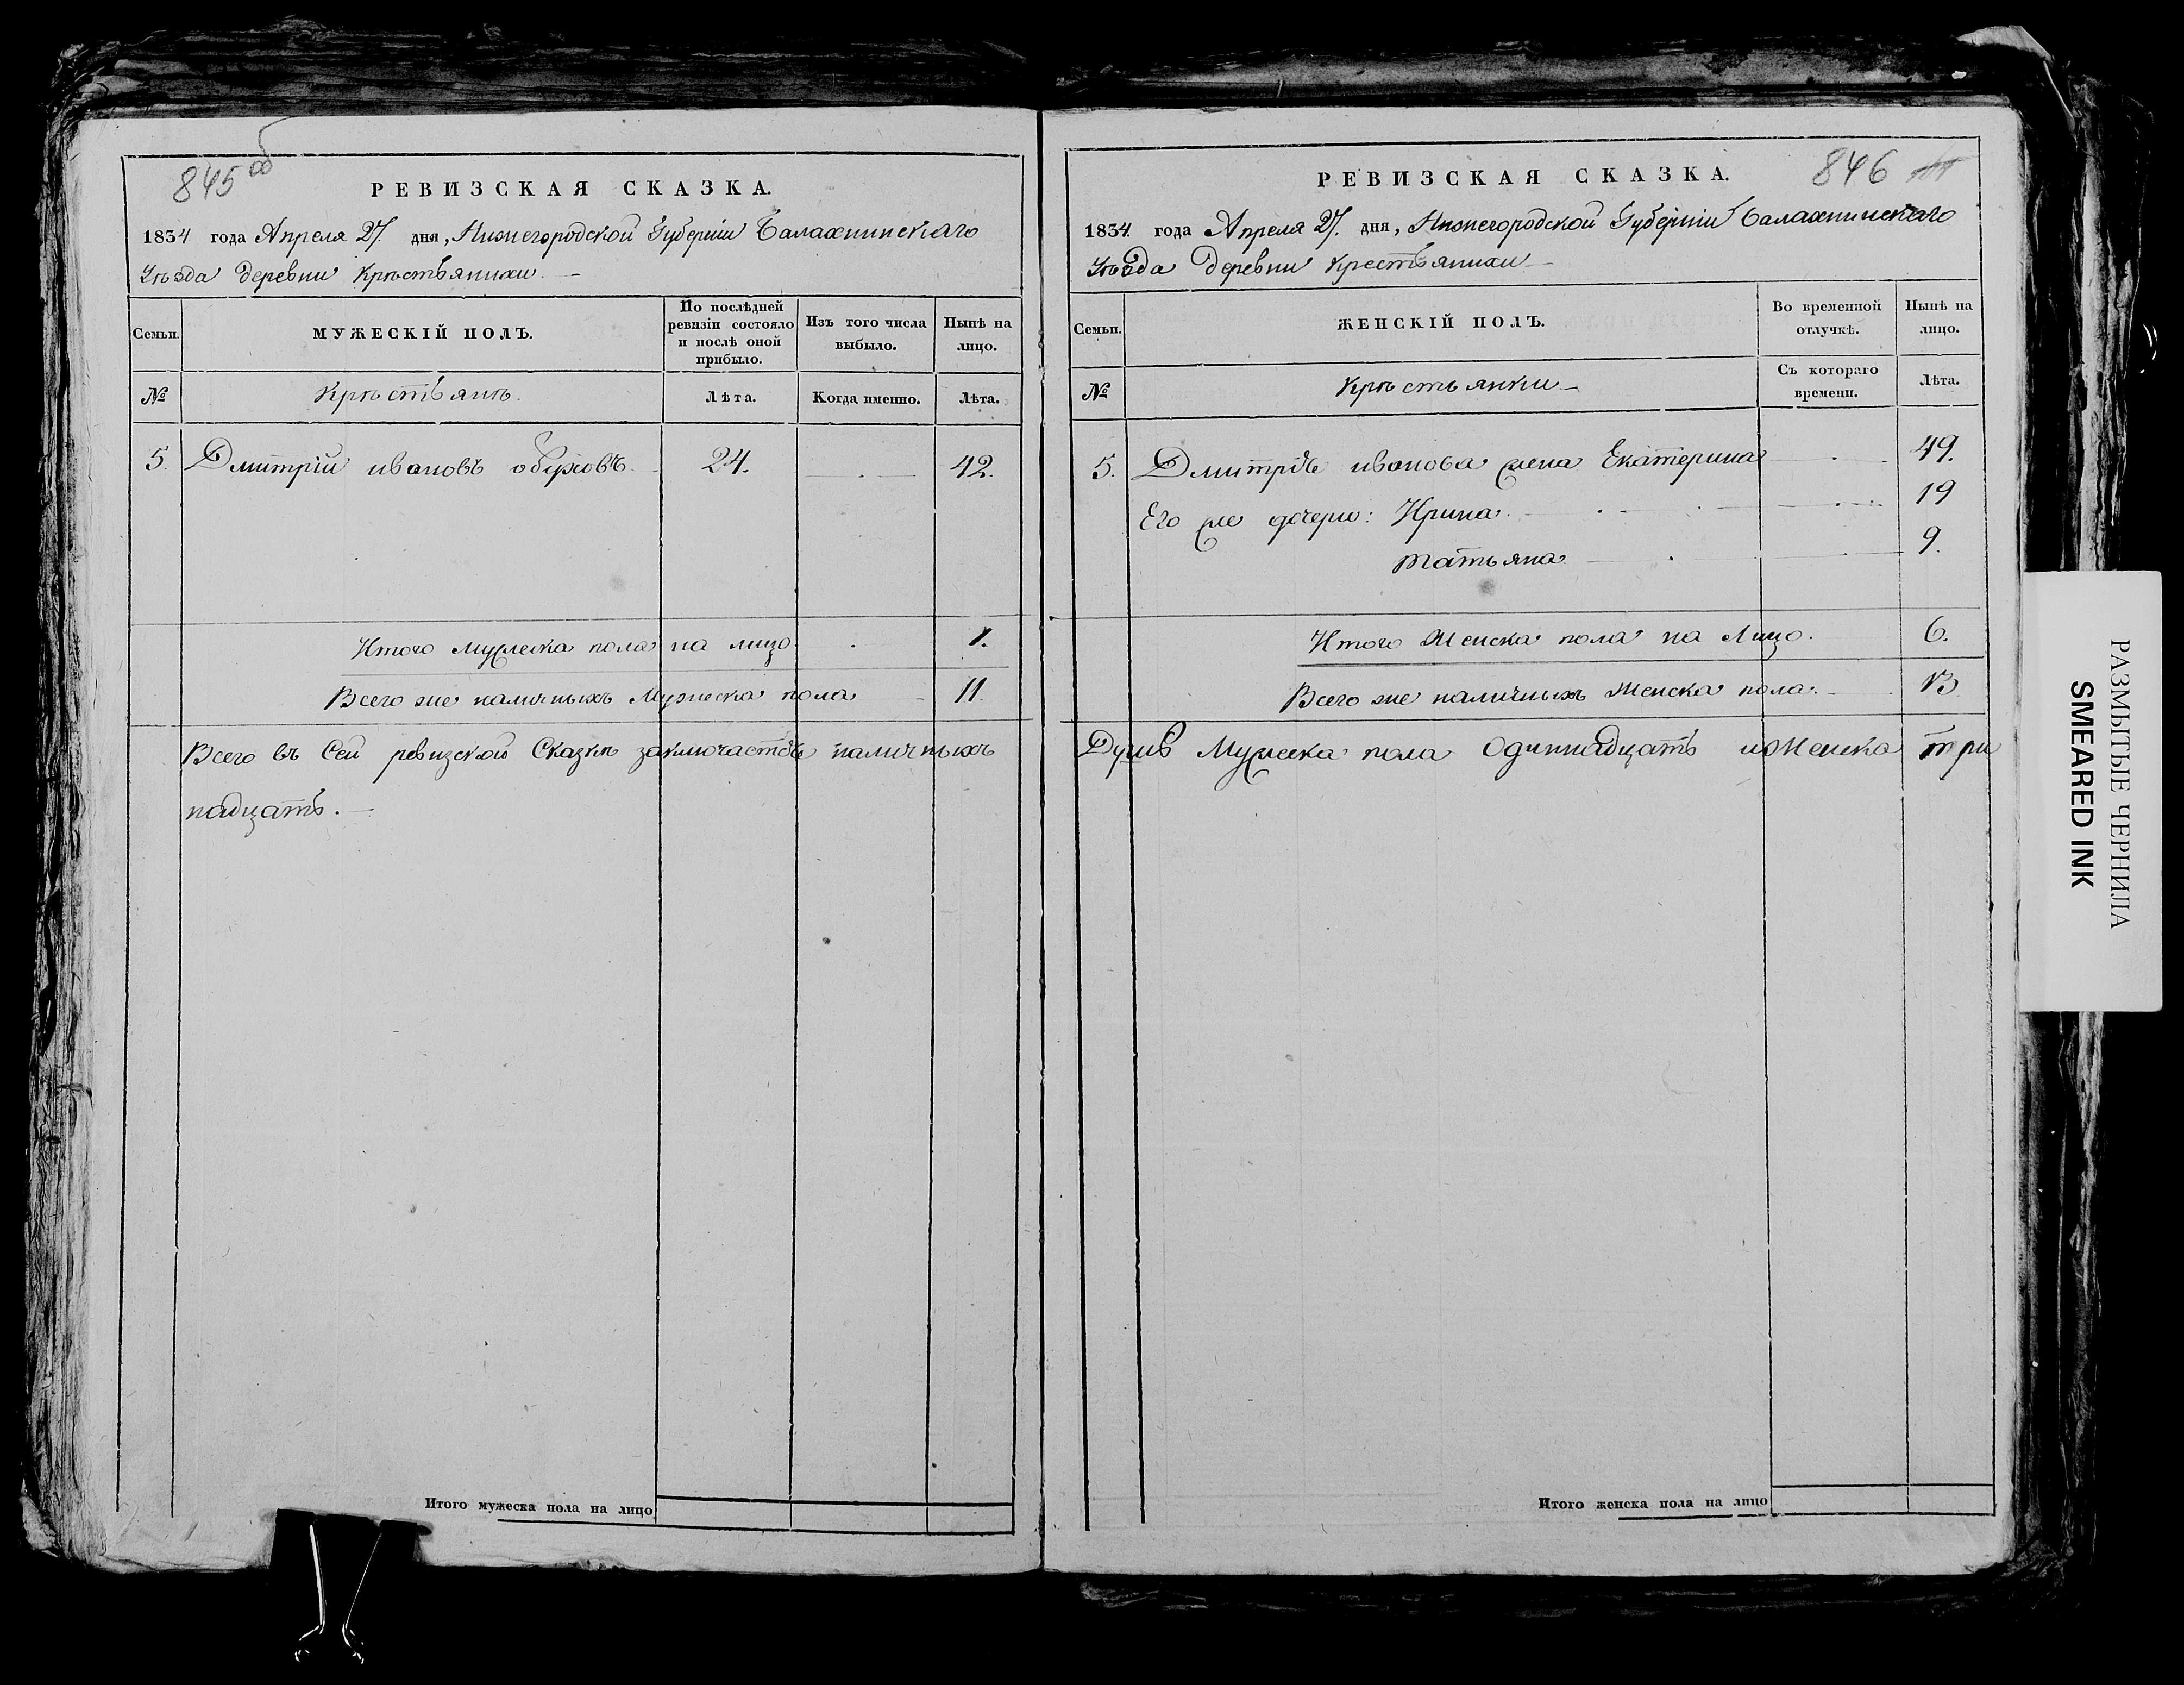 845 об
РЕВИЗСКАЯ СКАЗКА.
1834 года Апреля 27. дня, Нижегородской Губерніи Балахнинскаго
Уѣзда деревни Крѣстьянихи
Семьи.
МУЖЕСКІЙ ПОЛЪ.
По послѣдней ревизіи состояло и послѣ оной прибыло.
Изъ того числа выбыло.
Нынѣ на лицо.
№
Крѣстьянъ.
Лѣта.
Когда именно.
Лѣта.
5. Дмитрій ивановъ обуховъ 24. 42.
Итого мужеска пола на лицо 1.
Всего же наличныхъ Мужеска пола 11.
Всего въ Сей ревизской Сказкѣ заключается наличныхъ
надцать.
Итого мужеска пола на лицо
846
РЕВИЗСКАЯ СКАЗКА.
1834 года Апреля 27. дня, Нижегородской Губерніи Балахнинскаго
Уѣзда деревни Крестьянихи
Семьи.
ЖЕНСКІЙ ПОЛЪ.
Во временной отлучкѣ.
Нынѣ на лицо.
№
Крѣстьянки
Съ котораго времени.
Лѣта.
5. Дмитрѣя иванова жена Екатерина 49.
Его же дочери: Ирина 19
татьяна 9.
Итого Женска пола на Лицо. 6.
Всего же наличныхъ Женска пола. 13
Душъ Мужеска пола Одиннадцать и Женска три
Итого женска пола на лицо
РАЗМЫТЫЕ ЧЕРНИЛА
SMEARED INK